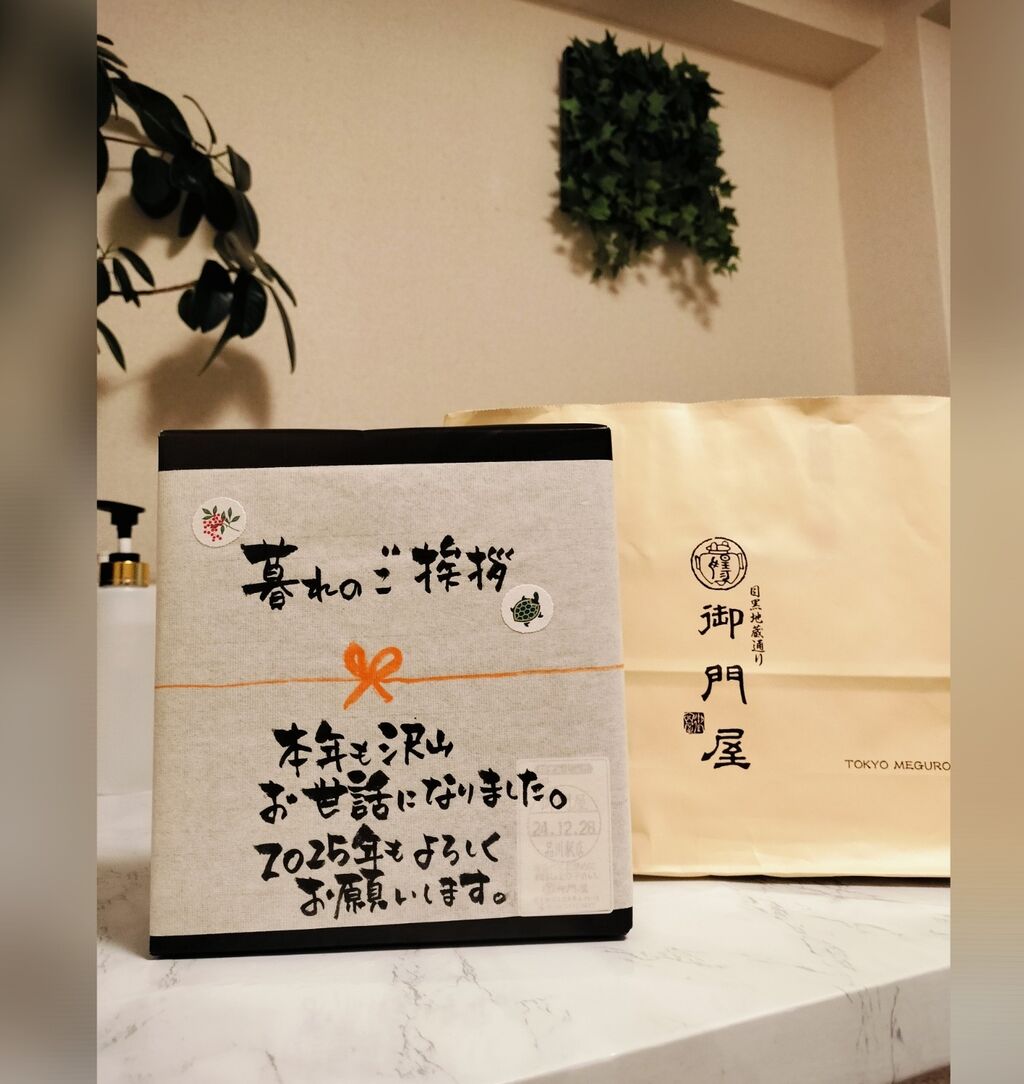 暮れのご挨拶
本年も沢山
お世話になりました。
2025年もよろしく
お願いします。
24.12.28
品川駅店
御門屋
目黒地蔵通り
TOKYO MEGURO